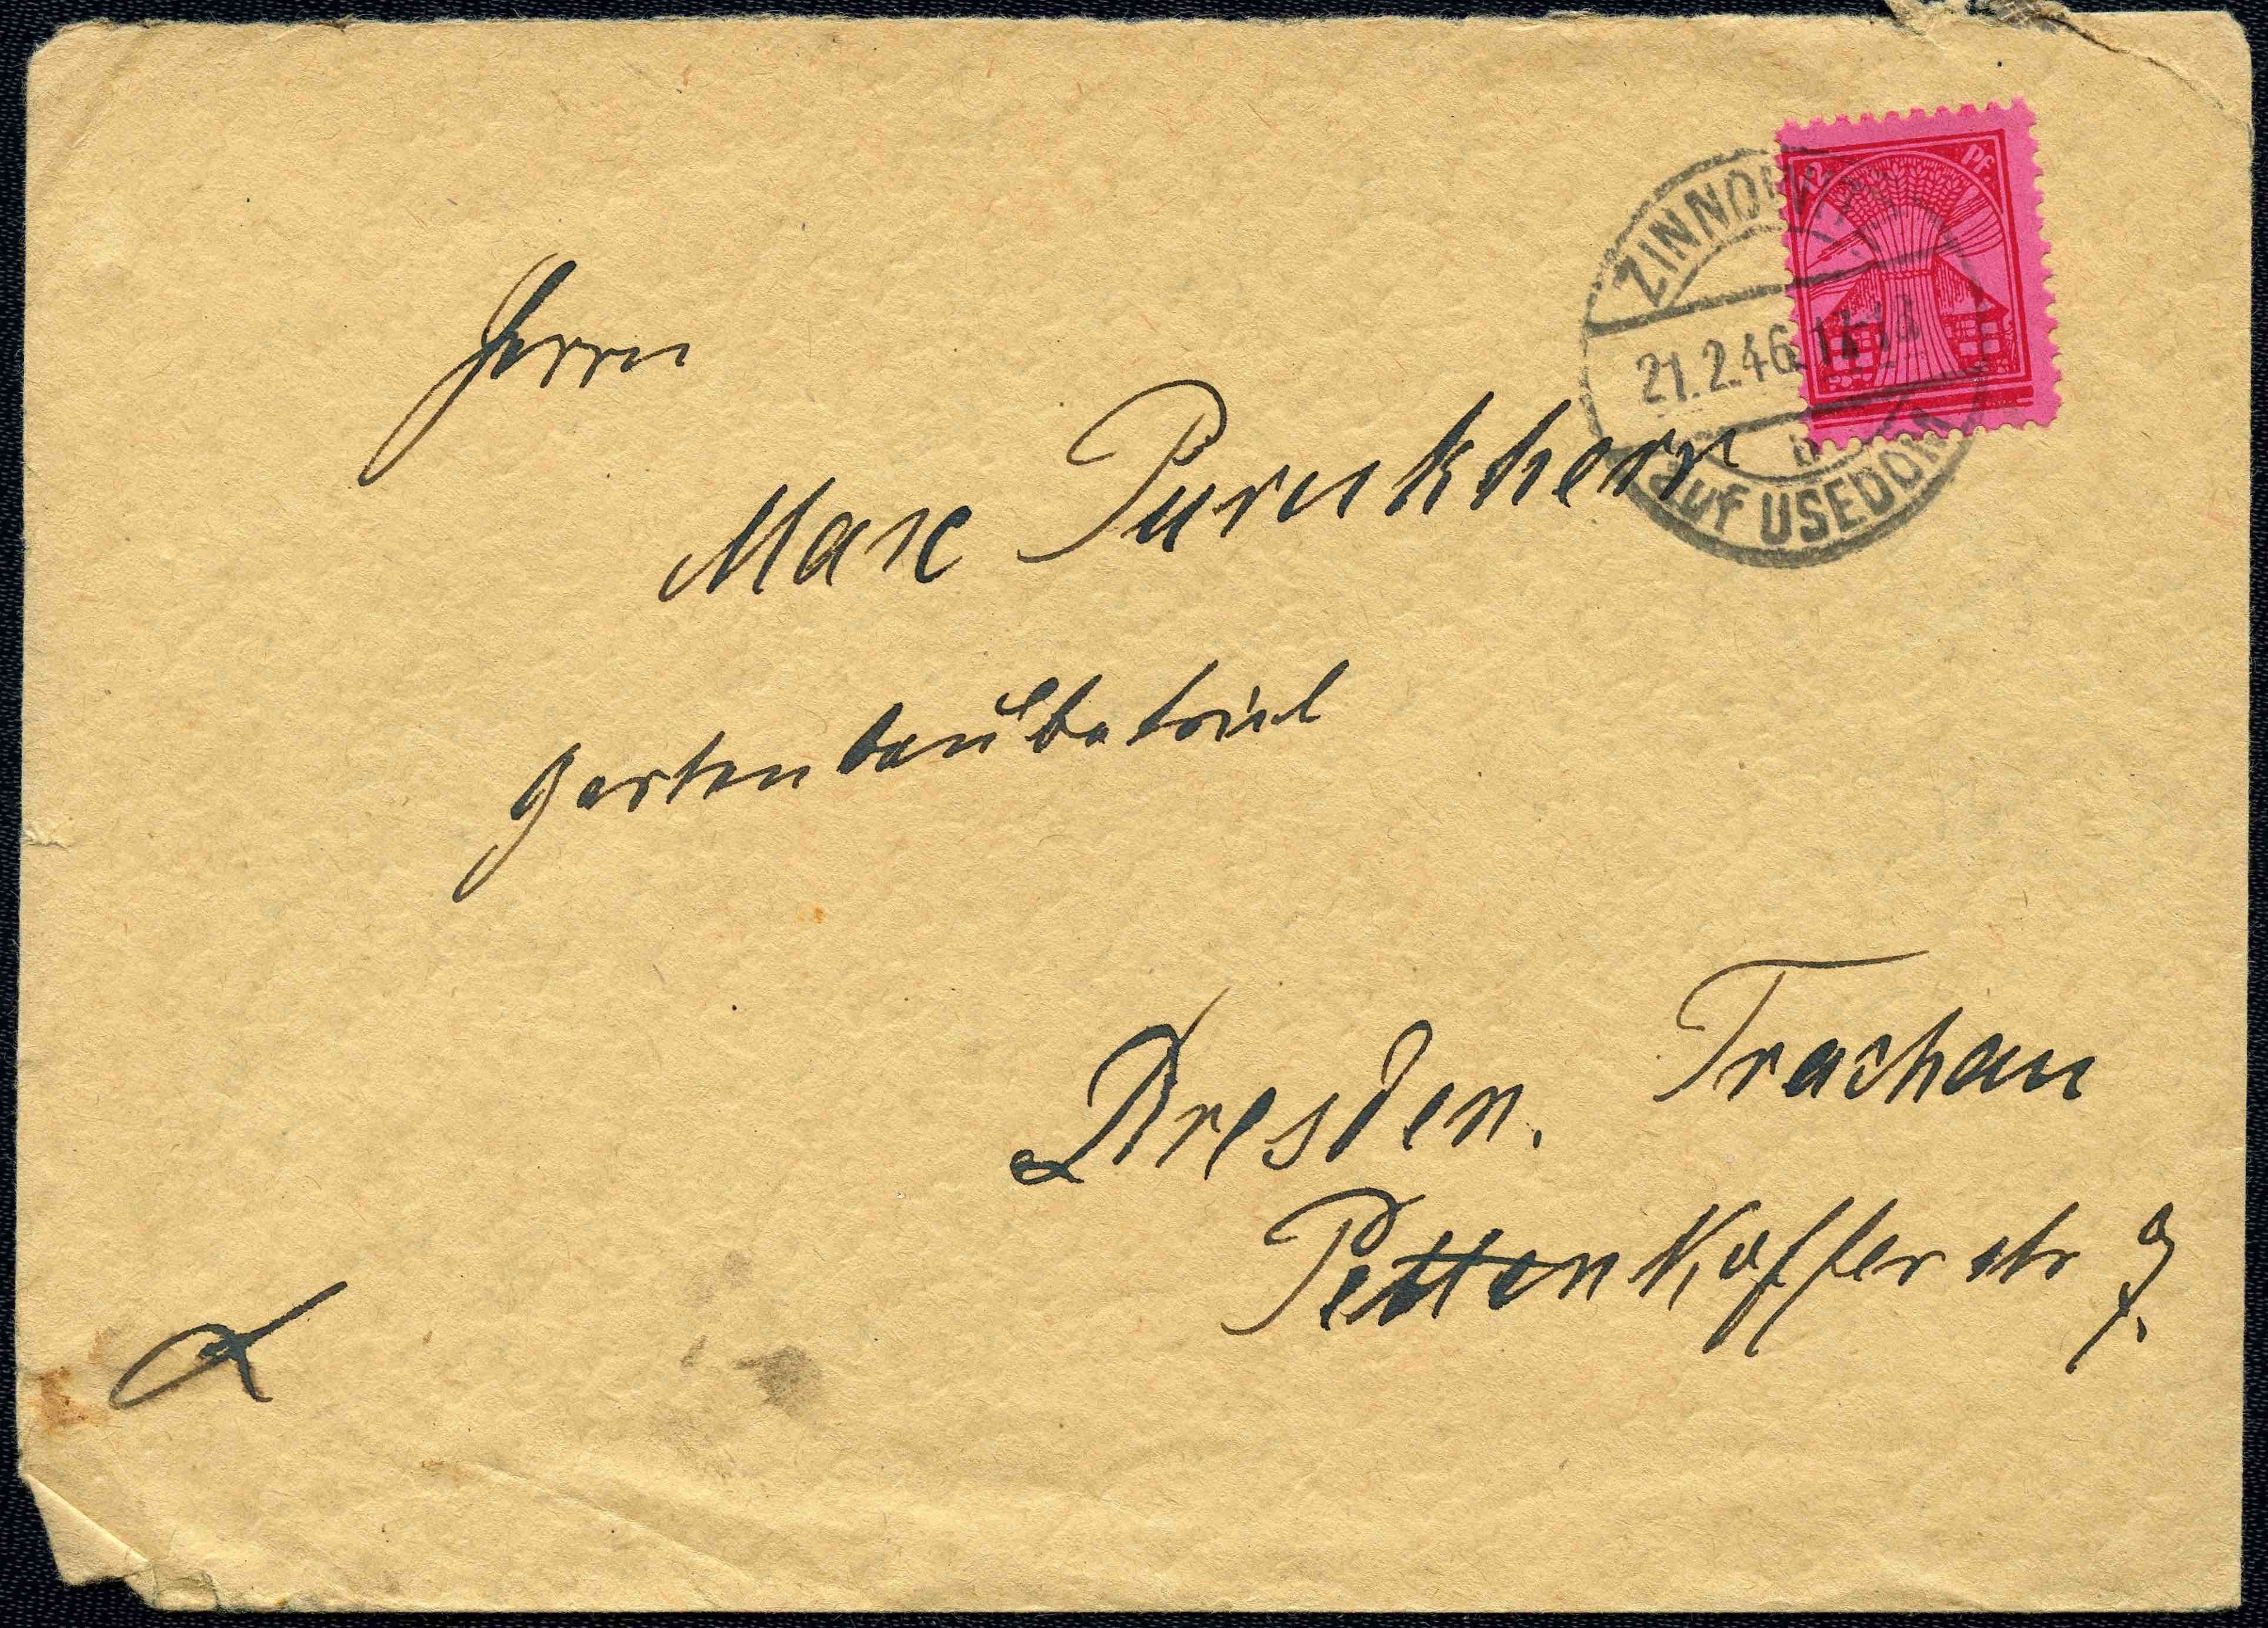 PF.
ZINNOWITZ
21.2.46.
b
auf USEDOM
Herrn
Max Purukherr
Gartenbaubetrieb
Dresden. Trachau
Pettenkofferstr 9.